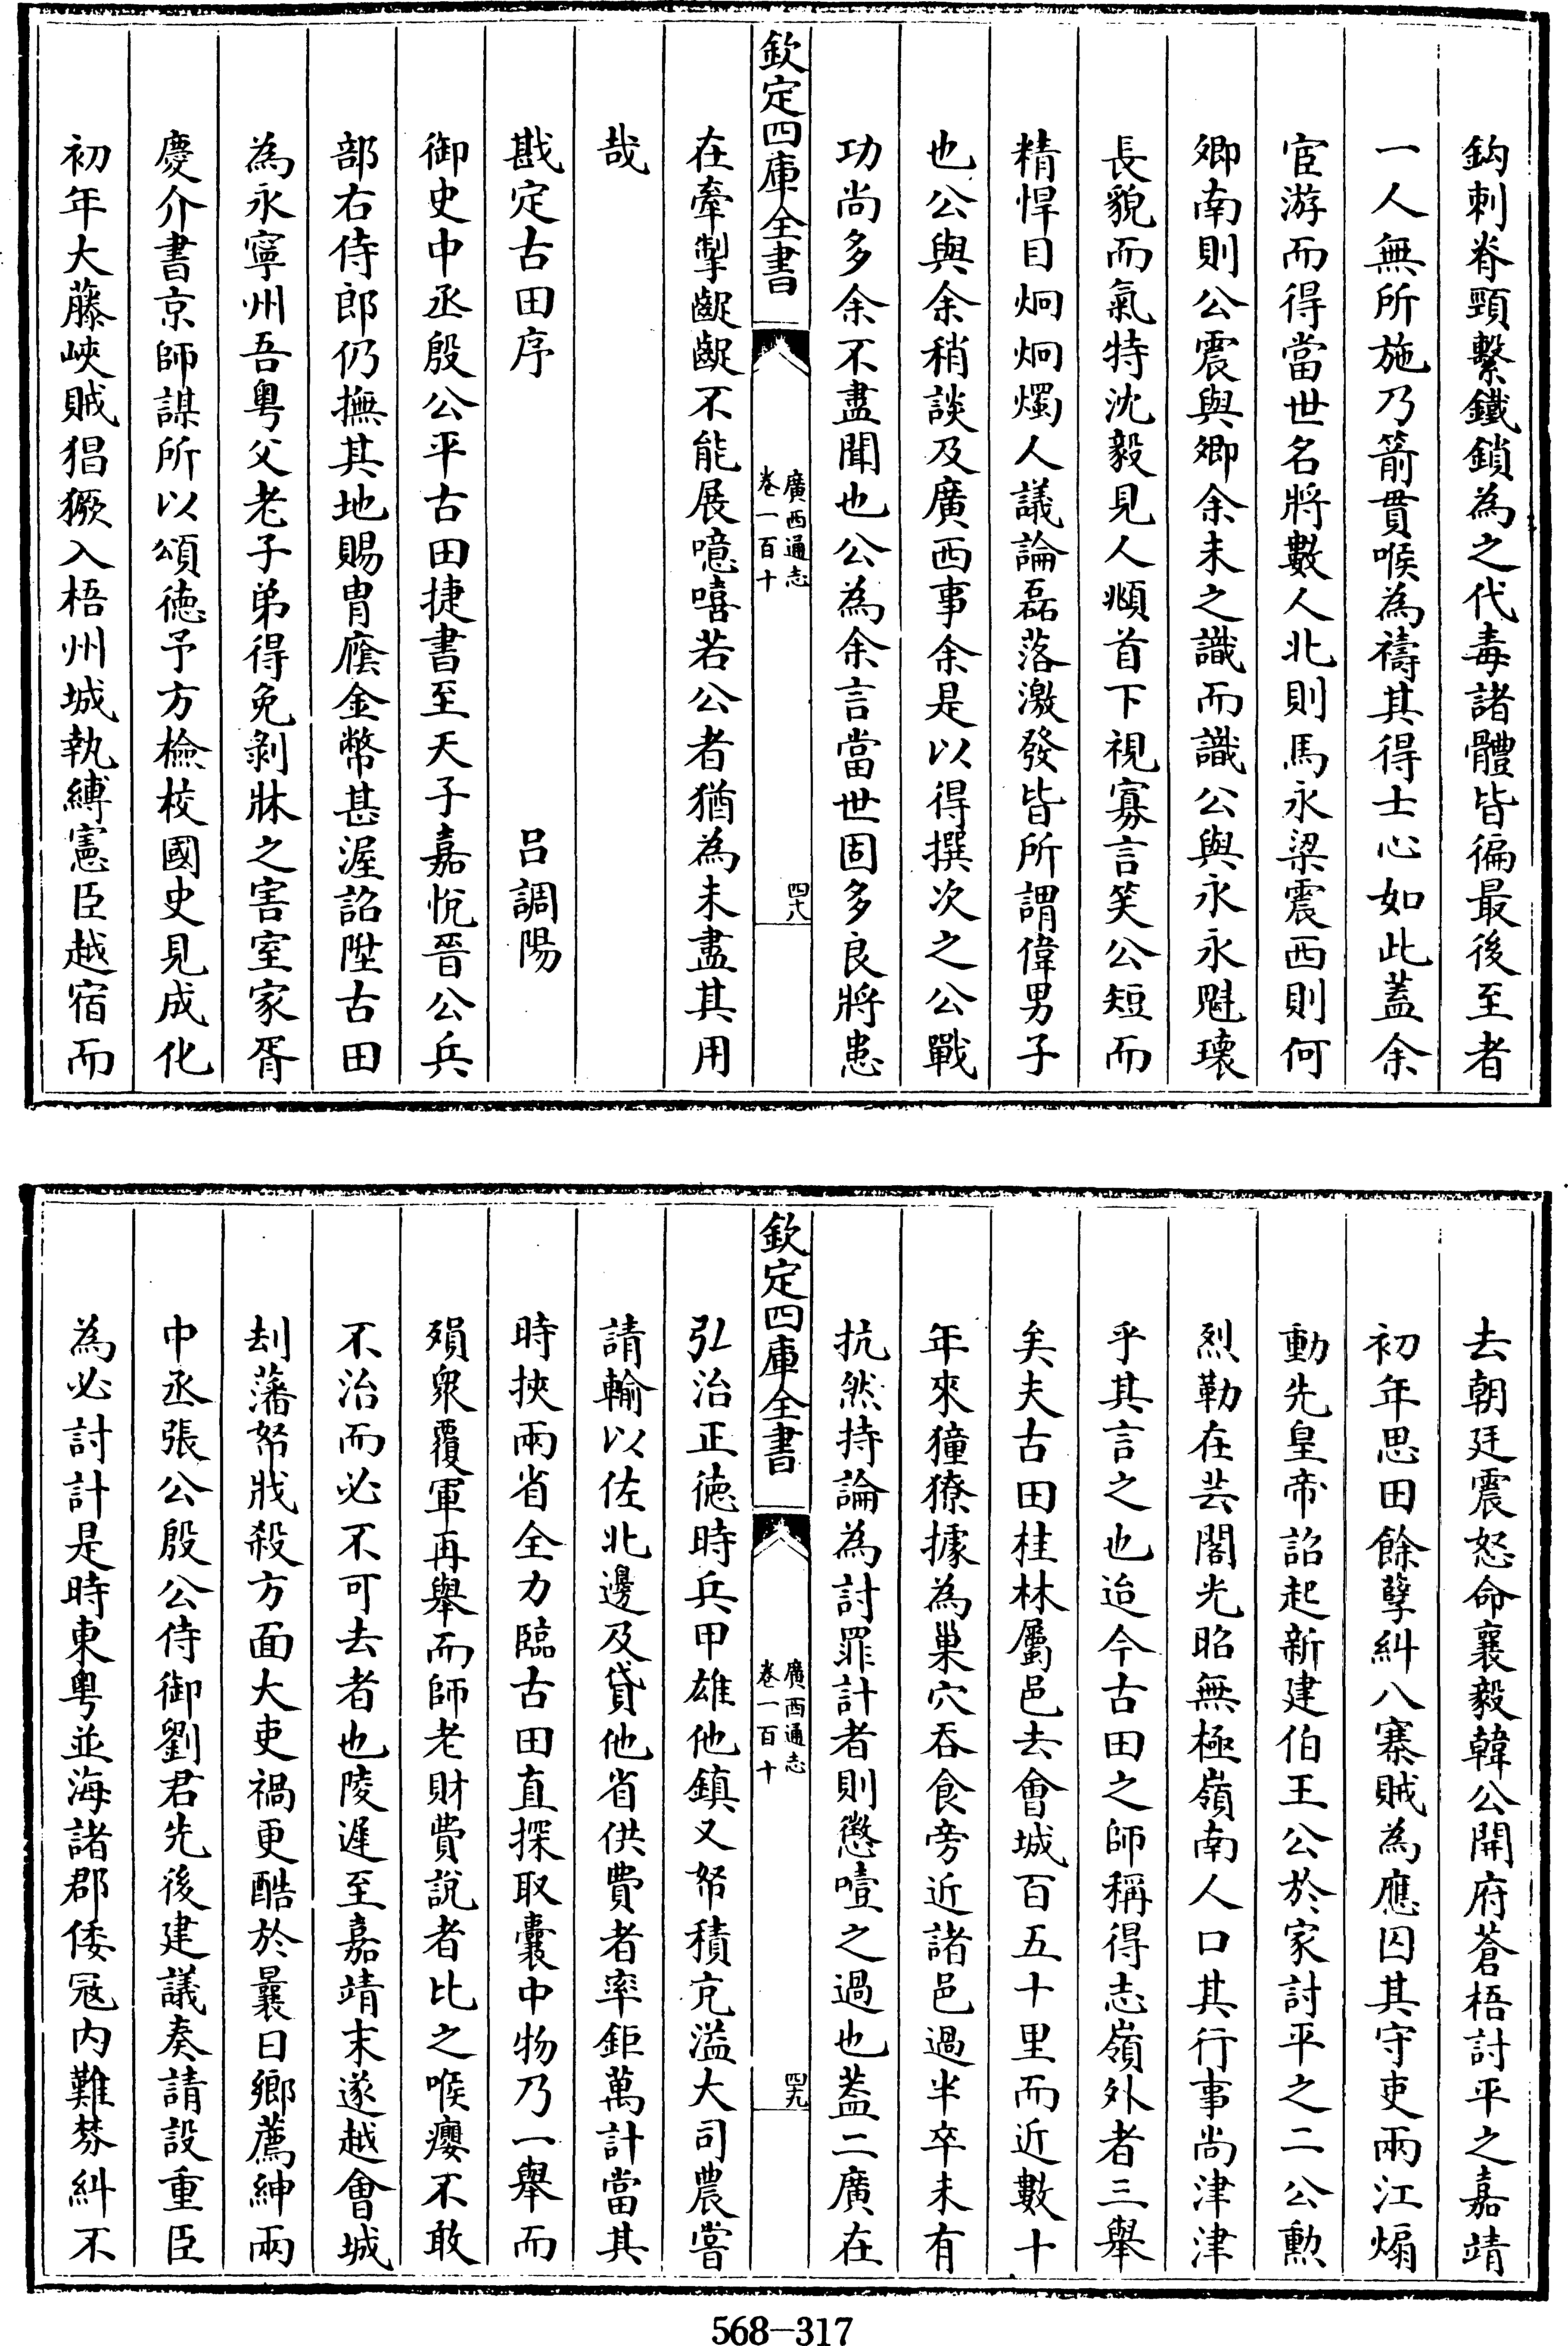 鈎刺脊頸繫鐵鎖為之代毒諸體皆徧最後至者
一人無所施乃箭貫喉為禱其得士心如此蓋余
宦游而得當世名將數人北則馬永梁震西則何
卿南則公震與卿余未之識而識公與永永魁瓌
長貌而氣特沈毅見人頫首下視寡言笑公短而
精悍目炯炯燭人議論磊落激發皆所謂偉男子
也公與余稍談及廣西事余是以得撰次之公戰
功尚多余不盡聞也公為余言當世固多良將患
欽定四庫全書
廣西通志
卷一百十
四十八
在牽掣齪齪不能展噫嘻若公者猶為未盡其用
哉
戡定古田序
呂調陽
御史中丞殷公平古田捷書至天子嘉悅晉公兵
部右侍郎仍撫其地賜胄廕金幣甚渥詔陞古田
為永寧州吾粵父老子弟得免剝牀之害室家胥
慶介書京師謀所以頌德予方檢校國史見成化
初年大藤峽賊猖獗入梧州城執縛憲臣越宿而
去朝廷震怒命襄毅韓公開府蒼梧討平之嘉靖
初年思田餘孽糾八寨賊為應囚其守吏兩江煽
動先皇帝詔起新建伯王公於家討平之二公勲
烈勒在芸閣光昭無極嶺南人口其行事尚津津
乎其言之也迨今古田之師稱得志嶺外者三舉
矣夫古田桂林屬邑去會城百五十里而近數十
年來獞獠據為巢穴吞食旁近諸邑過半卒未有
抗然持論為討罪計者則懲噎之過也葢二廣在
欽定四庫全書
廣西通志
卷一百十
四十九
弘治正德時兵甲雄他鎮又帑積充溢大司農嘗
請輸以佐北邊及貸他省供費者率鉅萬計當其
時挾兩省全力臨古田直探取囊中物乃一舉而
殞衆覆軍再舉而師老財費說者比之喉癭不敢
不治而必不可去者也陵遲至嘉靖末遂越會城
刦藩帑戕殺方面大吏禍更酷於曩日鄉薦紳兩
中丞張公殷公侍御劉君先後建議奏請設重臣
為必討計是時東粵並海諸郡倭寇内難棼糾不
568-317